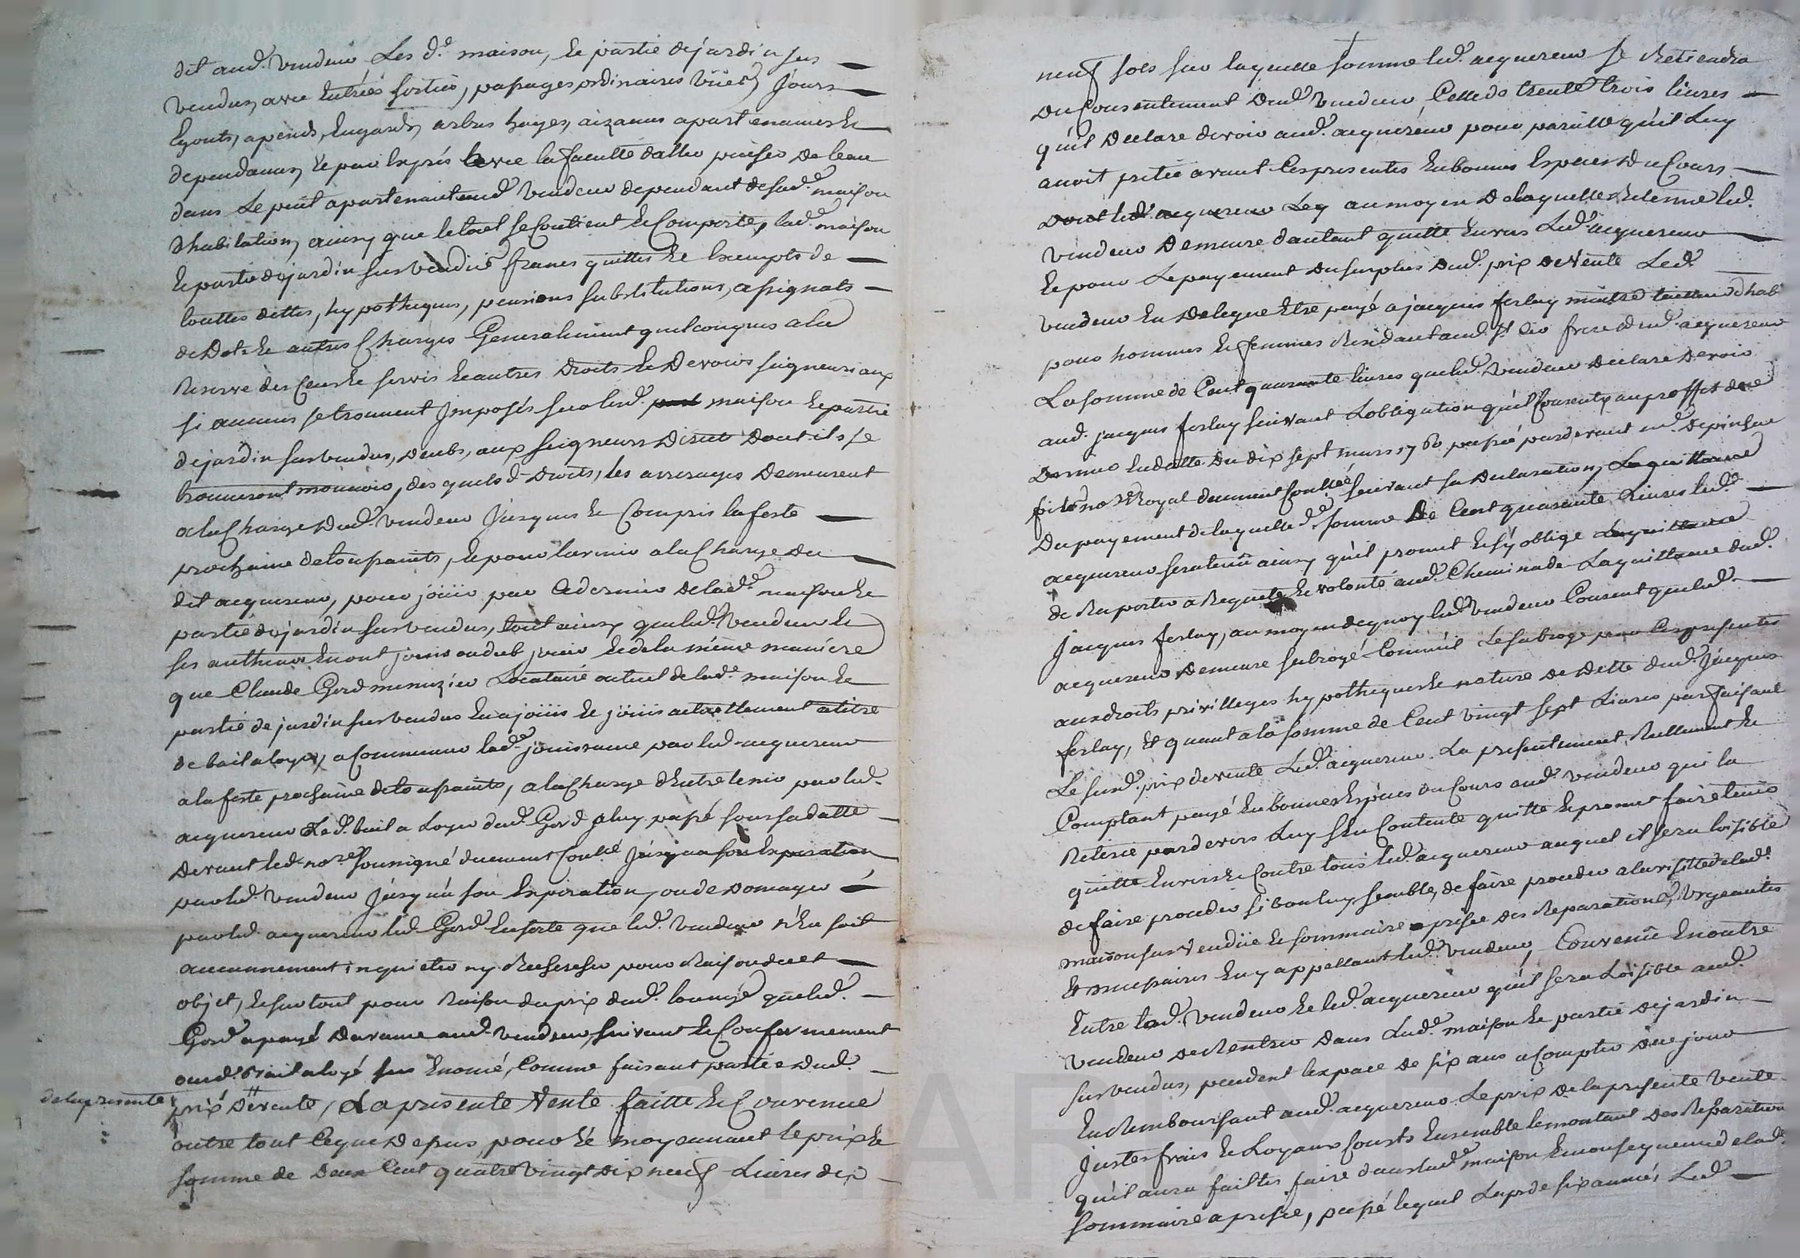 dit aud. vendeur Les d.e maison, et partie de jardin sus
vendus, avec Entrées sorties, passages ordinaires vües, Jours
Egouts, apends, Engards, arbres hayes, aizances apartenances et
dependances, et par Exprés avec la faculté daller puiser de leau
dans Le puit apartenant aud. vendeur dependant de sad.e maison
dhabitation, ainsy que le tout se Contient et Comporte, lad.e maison
et partie de jardin sus vendüe francs quittes et Exempts de
touttes dettes, hypotheques, pensions substitutions, assignats
de Dot et autres Charges Generalement quelconques a la
Reserve des Cens et servis et autres Droits et Devoirs seigneuriaux
si aucuns se trouvent Imposés sur lad. maison et partie
de jardin sus vendus, deubs, aux seigneurs Directs Dont ils se
trouveront mouvoir, des quels d. Droits, les arrerages Demeurent
a la Charge dud. vendeur Jusques et Compris la feste
prochaine de toussaints, et pour lavenir a la Charge du
dit acquereur, pour joüir par Ce dernier de lad.e maison et
partie de jardin sus vendus, tout ainsy que led. vendeur et
ses autheurs En ont joüis ou dub joüir et de la même maniere
que Claude Gord menuzier Locataire actuel de lad.e maison et
partie de jardin sus vendus En a joüis et joüis actuellement a titre
de bail a loyer, a Commencer lad.e joüissance par led. acquereur
a la feste prochaine de toussaints, a la Charge dEntretenir par led.
acquereur Le d. bail a Loyer dud. Gord a luy passé sous sa datte
Devant led. no.re soussigné duement Con.lé Jusqua son Expiration
par led. vendeur Jusqu'a son Expiration, ou de Domager
par led. acquereur led. Gord. En sorte que led. vendeur n'En soit
aucunnement inquietté ny Recherché pour Raison du et
objet, et surtout pour Raison du prix dud. que led.
Gord a payé Davance aud. vendeur, suivant et Conformement
aud. Bail a loyé sus Enoncé, Comme faisant partie dud.
de la presente
prix De vente, La presente Vente faitte et Convenue
outre tout Ce que Depus, pour et moyennant le prix et
somme de Deux Cent quatre vingt dix neuf Livres dix
neuf sols sur laquelle somme led. acquereur se Retiendra
du Consentement dud. vendeur Celle de trente trois livres
qu'il Declare devoir aud. acquereur pour pareille qu'il Luy
avoit pretée avant Ces presentes En bonnes Especes du Cours
Dont led. acquereur Ley au moyen De laquelle Retenue led.
vendeur Demeure dautant quitte Envers Led. acquereur
et pour Le payement du surplus dud. prix de Vente Led.
vendeur En Delegue Etre payé a jacques ferlay maitre tailleur dhab.
pour hommes et femmes Residant aud. frere dud. acquereur
La somme de Cent quarante livres que led. vendeur Declare Devoir
aud. jacques ferlay suivant Lobligation qu'il Consenty au proffit de ce
dernier En datte du dix sept mars 1760 passée pardevant m.e Depinsau
fils no.re Royal duement Conllée suivant sa Declaration, La quittance
Du payement de laquelle d.e somme De Cent quarante Livres led.
acquereur sera tenû ainsy qu'il promet et s'y oblige La quittance
de Raporter a Requete et volonté aud. Cheminade La quittance dud.
Jacques ferlay, au moyen de quoy led. vendeur Consent que led.
acquereur Demeure subrogé Comme il Le subroge par Ces presentes
aux droits privilleges hypotheques et nature de Dette dud. Jacques
ferlay, Et quant a la somme de Cent vingt sept Livres parfaisant
Le susd. prix de vente Led. acquereur La presentement, Reellement et
Comptant payé En bonnes Espèces du Cours aud. vendeur qui la
Retirée pardevers Luy s'en Contente quitte et promet faire tenir
quitte Envers et Contre tous led. acquereur auquel il sera loisible
de faire proceder si bon luy semble, de faire proceder a la visitte de lad.e
maison sus Vendüe et sommaire prisée des Reparations, Urgeantes
Et necessaires En y appellant led. vendeur, Convenû En outre
Entre led. vendeur et led. acquereur qu'il sera Loisible aud.
vendeur de Rentrer Dans Lad.e maison et partie de jardin
sus vendus, pendant lespace de six ans a Compter de ce jour
En Remboursant aud. acquereur Le prix de la presente Vente
Justes frais et Loyaux Cousts Ensemble le montant des Reparations
qu'il aura faittes faire dans lad.e maison En consequence de lad.
sommaire aprisée, passé lequel Laps de six années, Led.